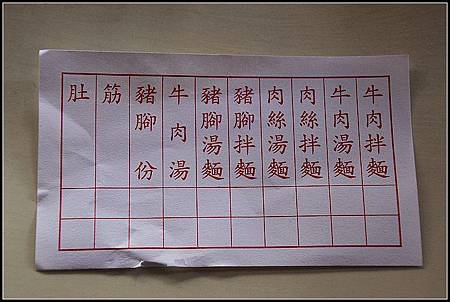 牛肉拌麵
牛肉湯麵
肉絲拌麵
肉絲湯麵
豬腳拌麵
豬腳湯麵
牛肉湯
豬腳份
筋
肚